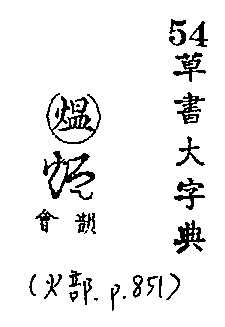 54
草書大字典
煴
韻會
(火部. p.851)